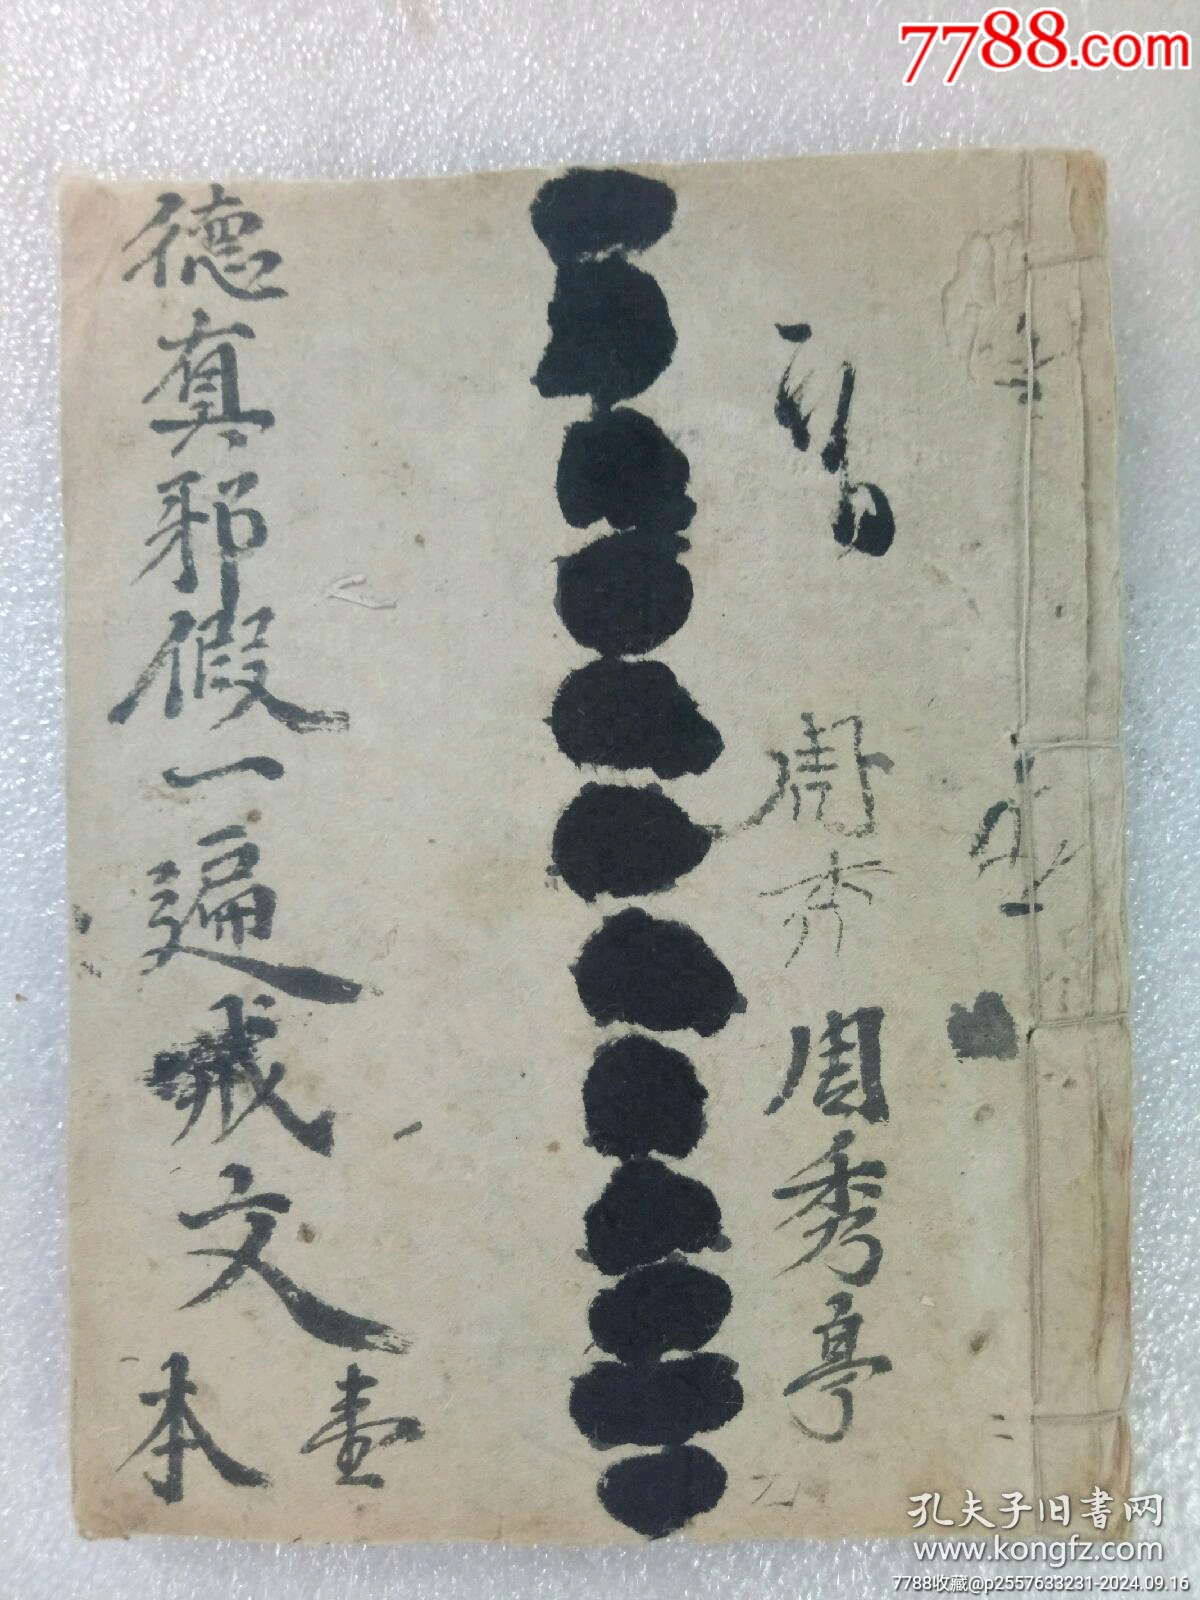 7788.com
周
秀
周秀亭
德真邪假一遍戒文
壹
本
孔夫子旧书网
www.kongfz.com
7788收藏@p2557633231-2024.09.16